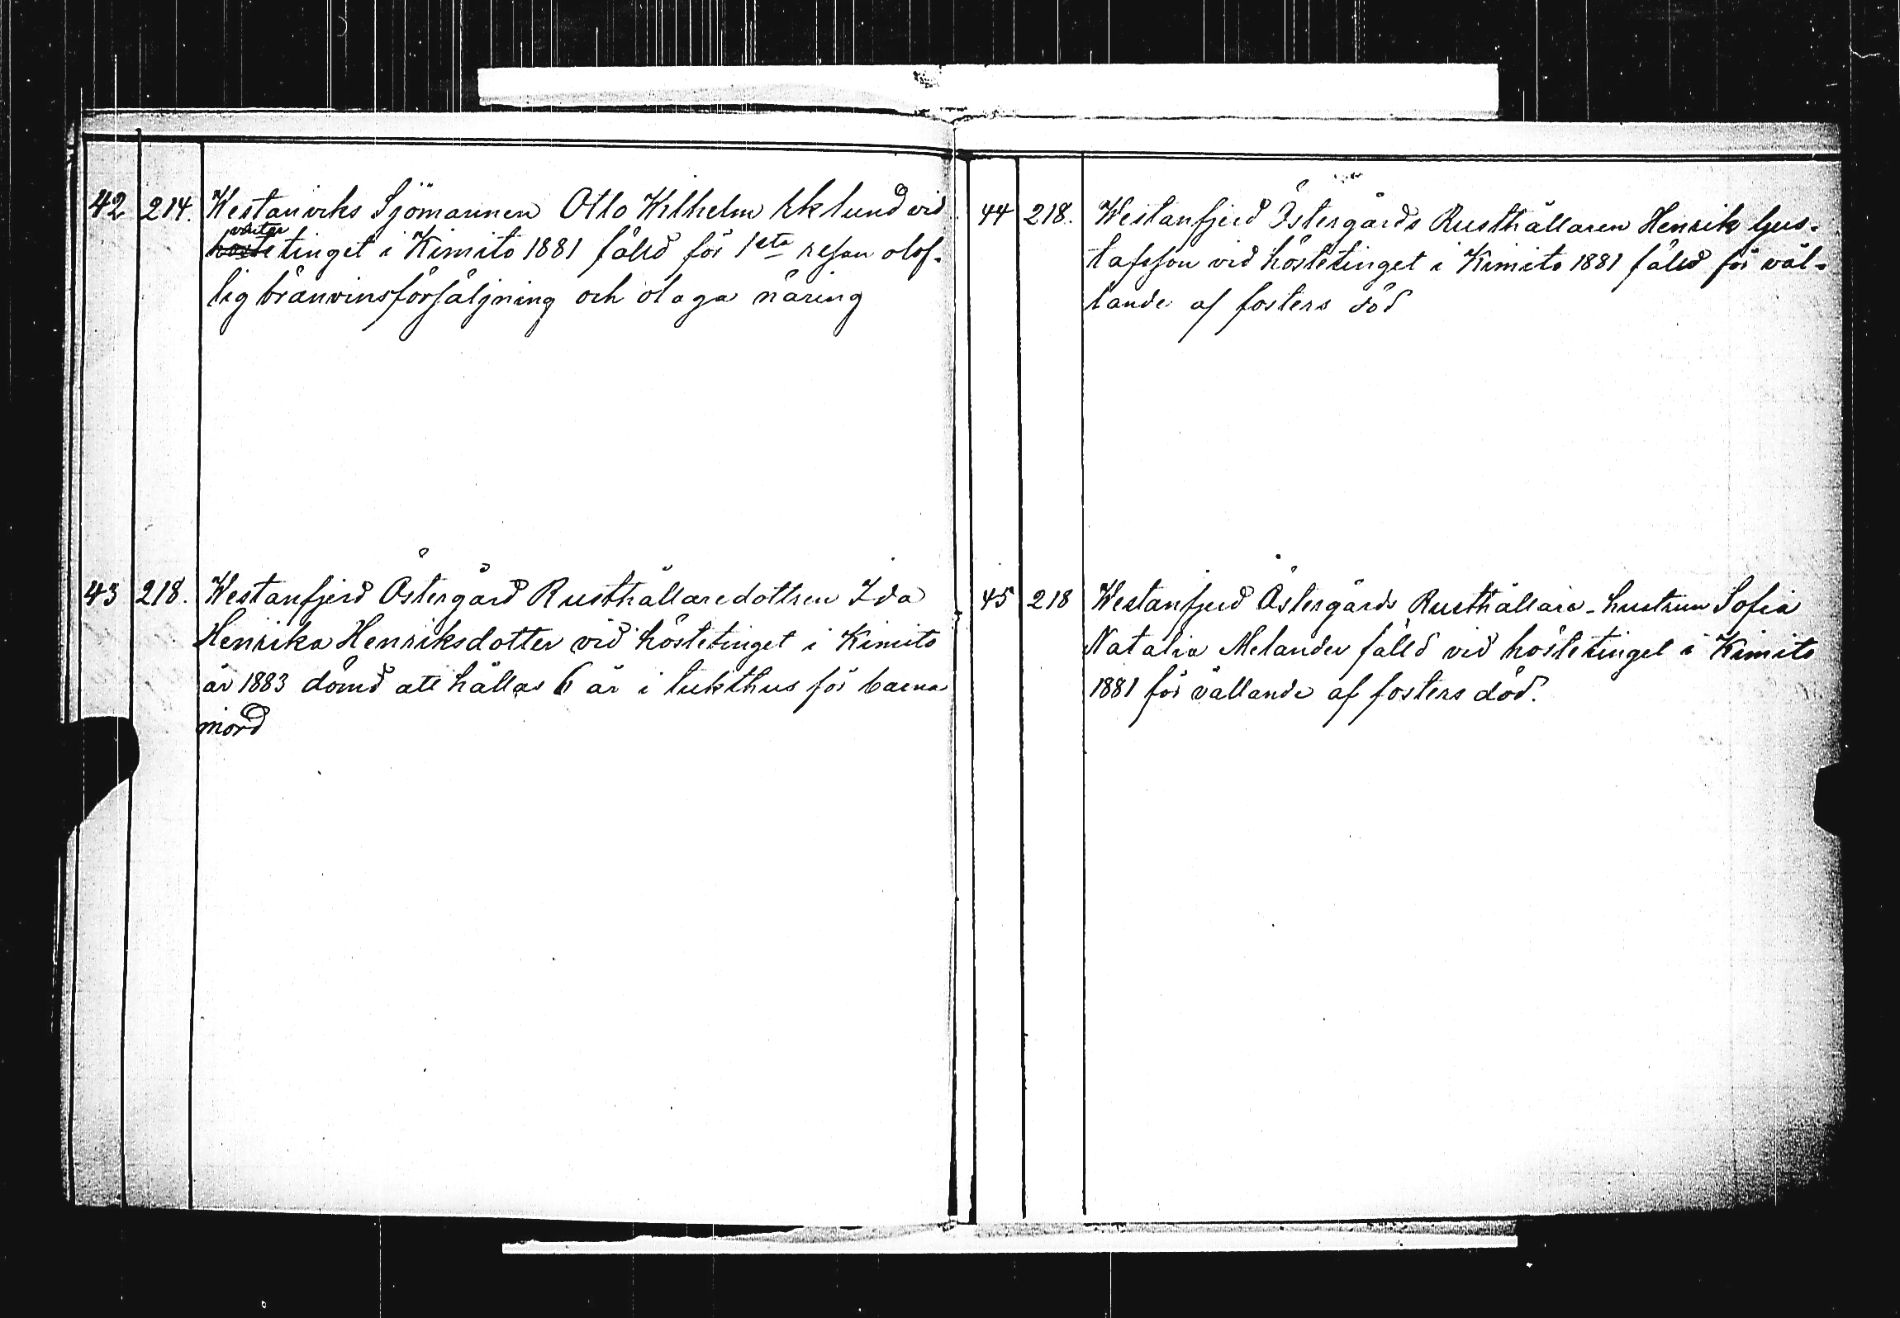 42 214. Westanviks Sjömannen Otto Wilhelm Eklund vid
vinter
höstetinget i Kimito 1881 fälld för 1sta resan olof-
lig bränvinsförsäljning och olaga näring
43 218. Westanfjerd Östergård Rusthållaredottren Ida
Henrika Henriksdotter vid höstetinget i Kimito
år 1883 dömd att hållas 6 år i tukthus för barna
mord
44 218. Westanfjerd Östergårds Rusthållaren Henrik Gus-
tafsson vid höstetinget i Kimito 1881 fälld för vål-
lande af fosters död
45 218 Westanfjerd Östergårds Rusthållare-hustrun Sofia
Natalia Melander fälld vid höstetinget i Kimito
1881 för vållande af fosters död.